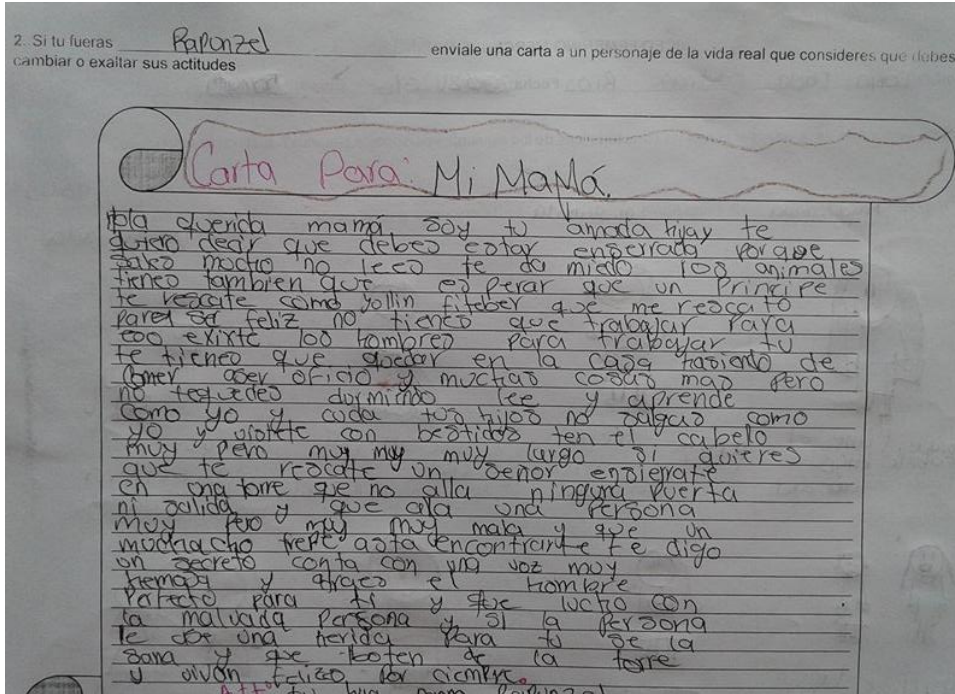 2. Si tu fueras Rapunzel enviale una carta a un personaje de la vida real que consideres que debes
cambiar o exaltar sus actitudes
Carta Para: Mi MaMá.
hola querida mamá soy tu amada hijay te
quiero decir que debes estar enserrada porque
sales mocho no lees te da miedo los animales
tienes tambien que esperar que un Principe
te rescate como yollin fiteber que me rescato
para ser feliz no tienes que trabajar para
eso exixte los hombres para trabajar tu
te tienes que quedar en la casa hasiendo de
comer aser oficio y muchas cosas mas pero
no tequedes durmiendo lee y aprende
como yo y cuda tus hijos no salgas como
yo y vistete con bestidos ten el cabelo
muy pero muy muy muy largo si quieres
que te rescate un señor ensierrate
en una torre que no alla ninguna puerta
ni salida y que alla una persona
muy pero muy muy mala y que un
mochacho trepe asta encontrarte te digo
un secreto canta con una voz muy
hermosa y atraes el hombre
Perfecto para ti y que lucho con
la malvada persona y si la persona
le da una herida para tu se la
sana y que boten de la torre
y vivan felizes por ciempre.
Att: tu hija Rapunzel